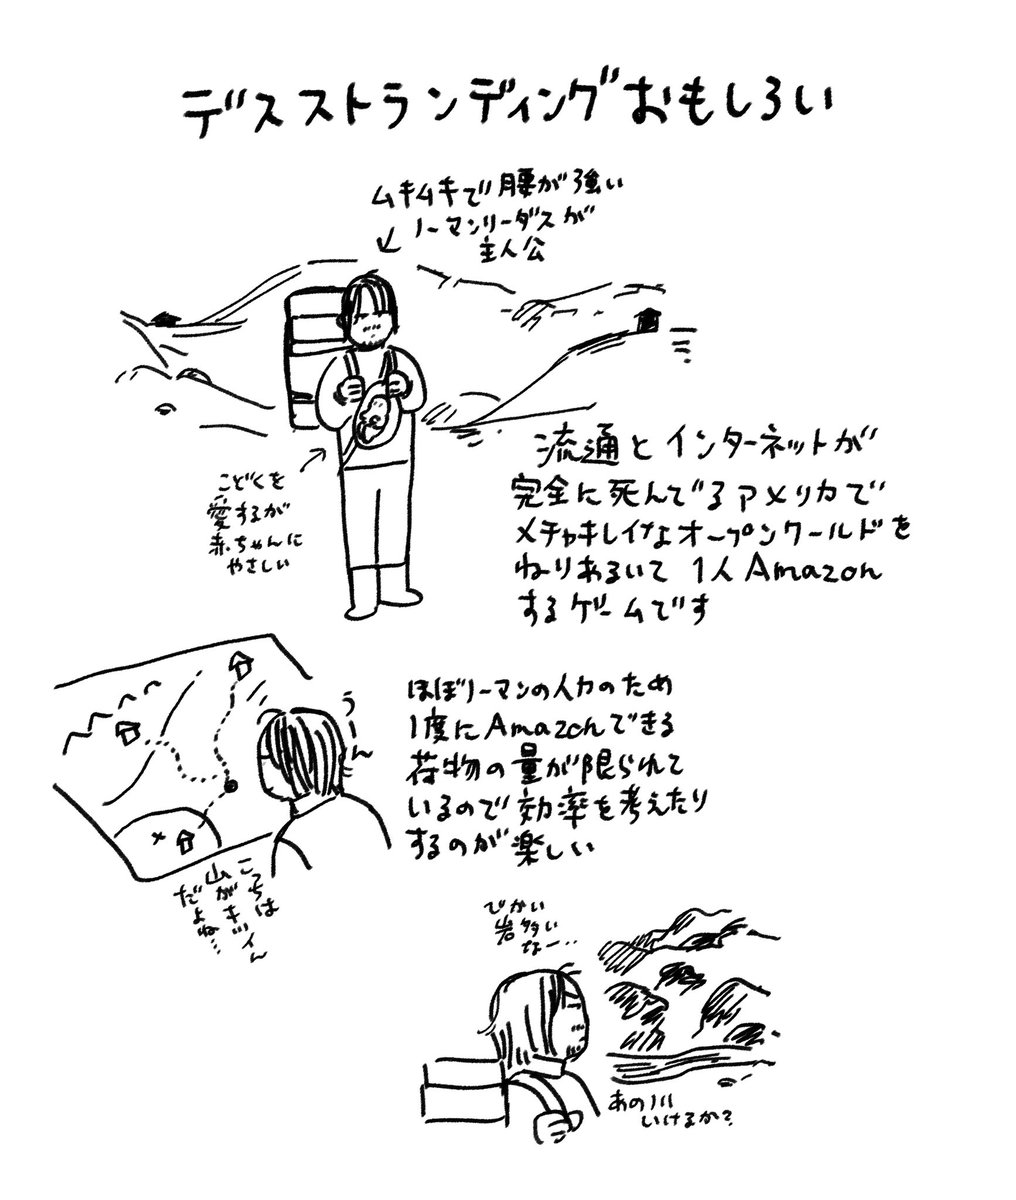 デスストランディングおもしろい
ムキムキで腰が強い
ノーマンリーダスが
主人公
こどくを
愛するが
赤ちゃんに
やさしい
流通とインターネットが
完全に死んでるアメリカで
メチャキレイなオープンワールドを
ねりあるいて 1人Amazon
するゲームです
うーん
ほぼノーマンの人力のため
1度にAmazonできる
荷物の量が限られて
いるので効率を考えたり
するのが楽しい
こっちは
山がキツイん
だよね…
でかい
岩多い
なー…
あの川
いけるか?